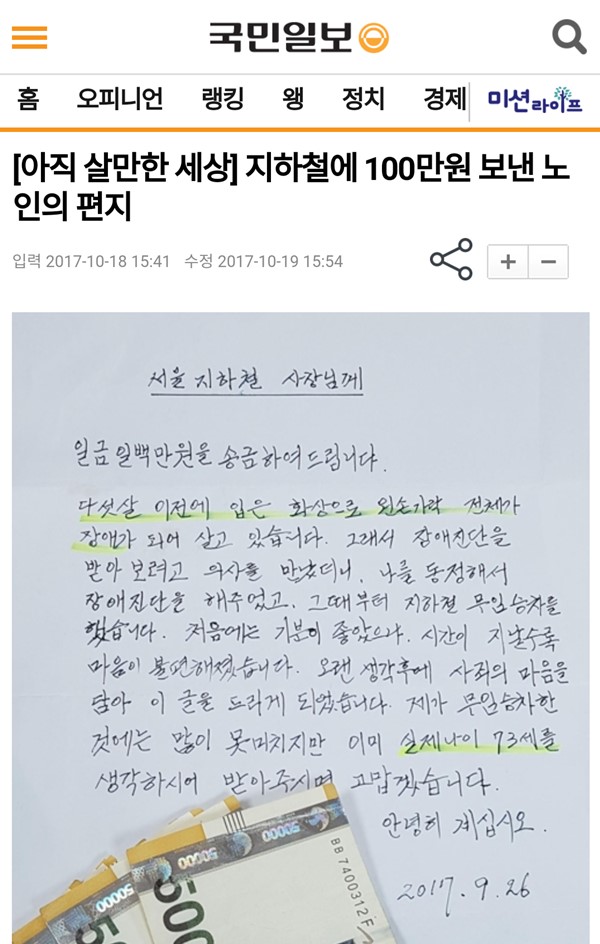 국민일보
홈 오피니언 랭킹 왱 정치 경제 미션라이프
[아직 살만한 세상] 지하철에 100만원 보낸 노
인의 편지
입력 2017-10-18 15:41 수정 2017-10-19 15:54
+ −
서울 지하철 사장님께
일금 일백만원을 송금하여 드립니다.
다섯살 이전에 입은 화상으로 왼손가락 전체가
장애가 되어 살고 있습니다. 그래서 장애진단을
받아 보려고 의사를 만났더니, 나를 동정해서
장애진단을 해주었고, 그때부터 지하철 무임승차를
했습니다. 처음에는 기분이 좋았으나, 시간이 지날수록
마음이 불편해졌습니다. 오랜 생각후에 사죄의 마음을
담아 이 글을 드리게 되었습니다. 제가 무임승차한
것에는 많이 못미치지만 이미 실제나이 73세를
생각하시어 받아주시면 고맙겠습니다.
안녕히 계십시오.
2017. 9. 26
50000
50000
50000
BB 7400312 F
500
500